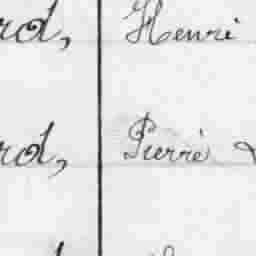 rd, Henri
rd, Pierre &